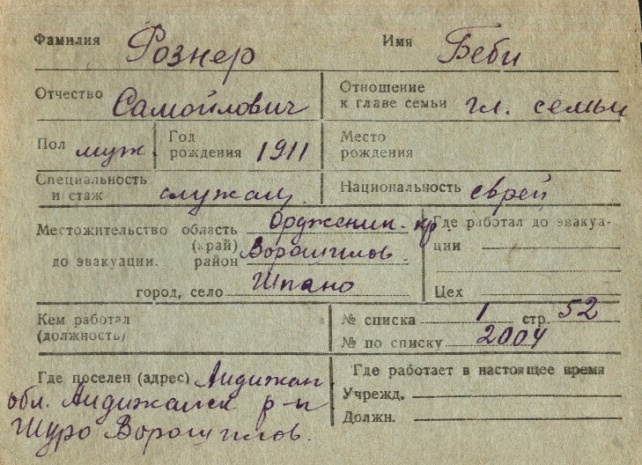 Фамилия Рознер Имя Беби
Отчество Самойлович Отношение к главе семьи гл. семьи
Пол муж. Год рождения 1911 Место рождения
Специальность и стаж служащ. Национальность еврей
Местожительство область Орджоник. кр Где работал до эвакуа-
(край)
до эвакуации. район Ворошилов. ции
город, село Шпано Цех
Кем работал № списка 1 стр. 52
(должность) № по списку 2004
Где поселен (адрес) Андижан Где работает в настоящее время
обл. Андижанск р-н Учрежд.
Шуро Ворошилов. Должн.